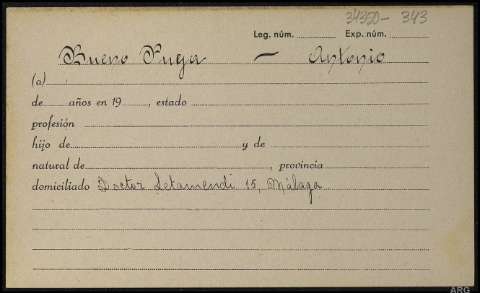 34350-343
Leg. núm. Exp. núm.
Bueno Puga — Antonio
(a)
de años en 19 , estado
profesión
hijo de y de
natural de , provincia
domiciliado Doctor Letamendi 15, Málaga
ARG